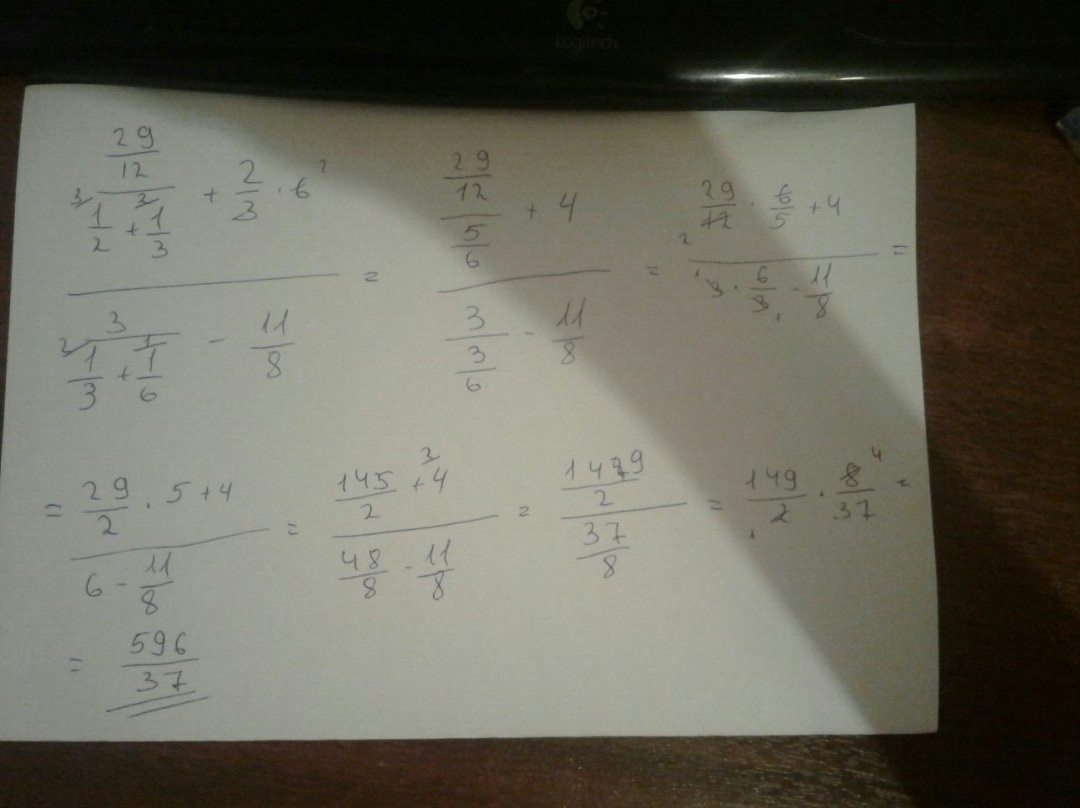 Logitech
((29/12)/(1/2 + 1/3) + 2/3 · 6)/(3/(1/3 + 1/6) - 11/8) = ((29/12)/(5/6) + 4)/(3/(3/6) - 11/8) = (29/12 · 6/5 + 4)/(3 · 6/3 - 11/8) =
= (29/2 · 5 + 4)/(6 - 11/8) = (145/2 + 4)/(48/8 - 11/8) = (149/2)/(37/8) = 149/2 · 8/37 =
= 596/37